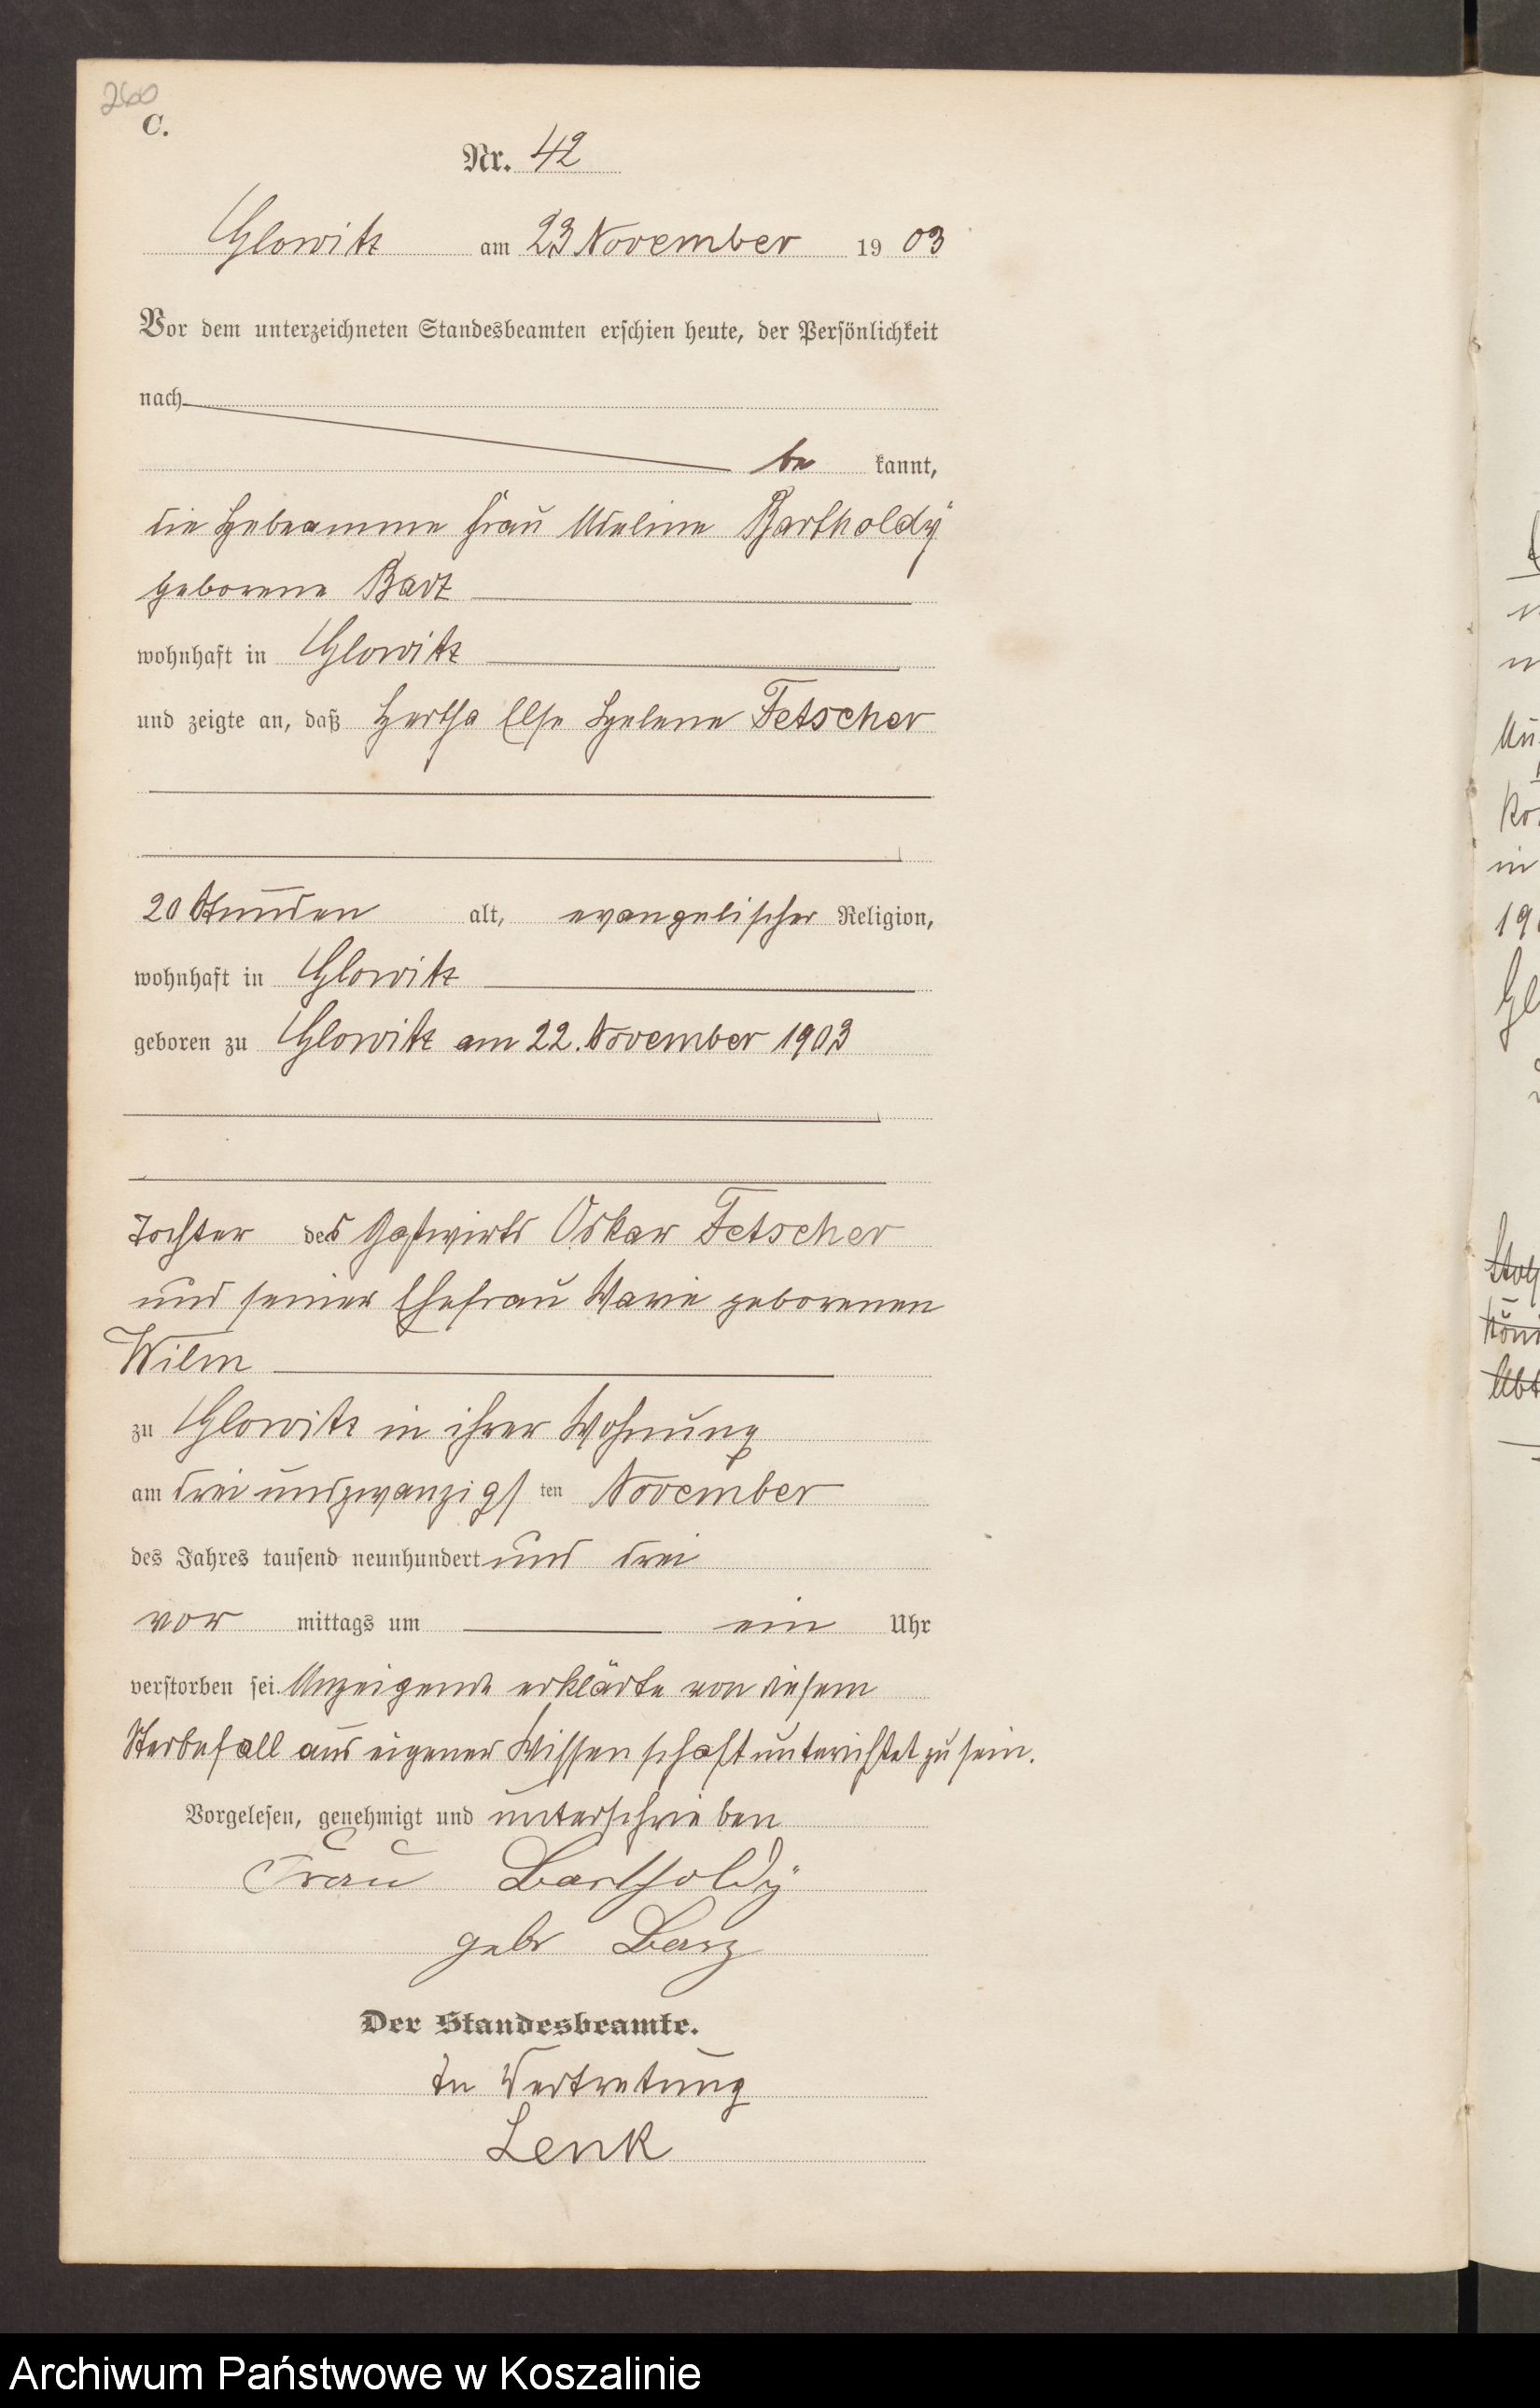 260
C.
Nr. 42
Glowitz am 23 November 1903
Vor dem unterzeichneten Standesbeamten erschien heute, der Persönlichkeit
nach
be kannt,
die Hebeamme Frau Adeline Bartholdÿ
geborene Barz
wohnhaft in Glowitz
und zeigte an, daß Hertha Else Helene Fetscher
20 Stunden alt, evangelischer Religion,
wohnhaft in Glowitz
geboren zu Glowitz am 22. November 1903
Tochter des Gastwirts Oskar Fetscher
und seiner Ehefrau Marie geborenen
Wilm
zu Glowitz in ihrer Wohnung
am dreiundzwanzigsten November
des Jahres tausend neunhundert und drei
vor mittags um ein Uhr
verstorben sei. Anzeigende erklärte von diesem
Sterbefall aus eigener Wissenschaft unterichtet zu sein.
Vorgelesen, genehmigt und unterschrieben
Frau Bartholdÿ
geb Barz
Der Standesbeamte.
In Vertretung
Lenk
Archiwum Państwowe w Koszalinie